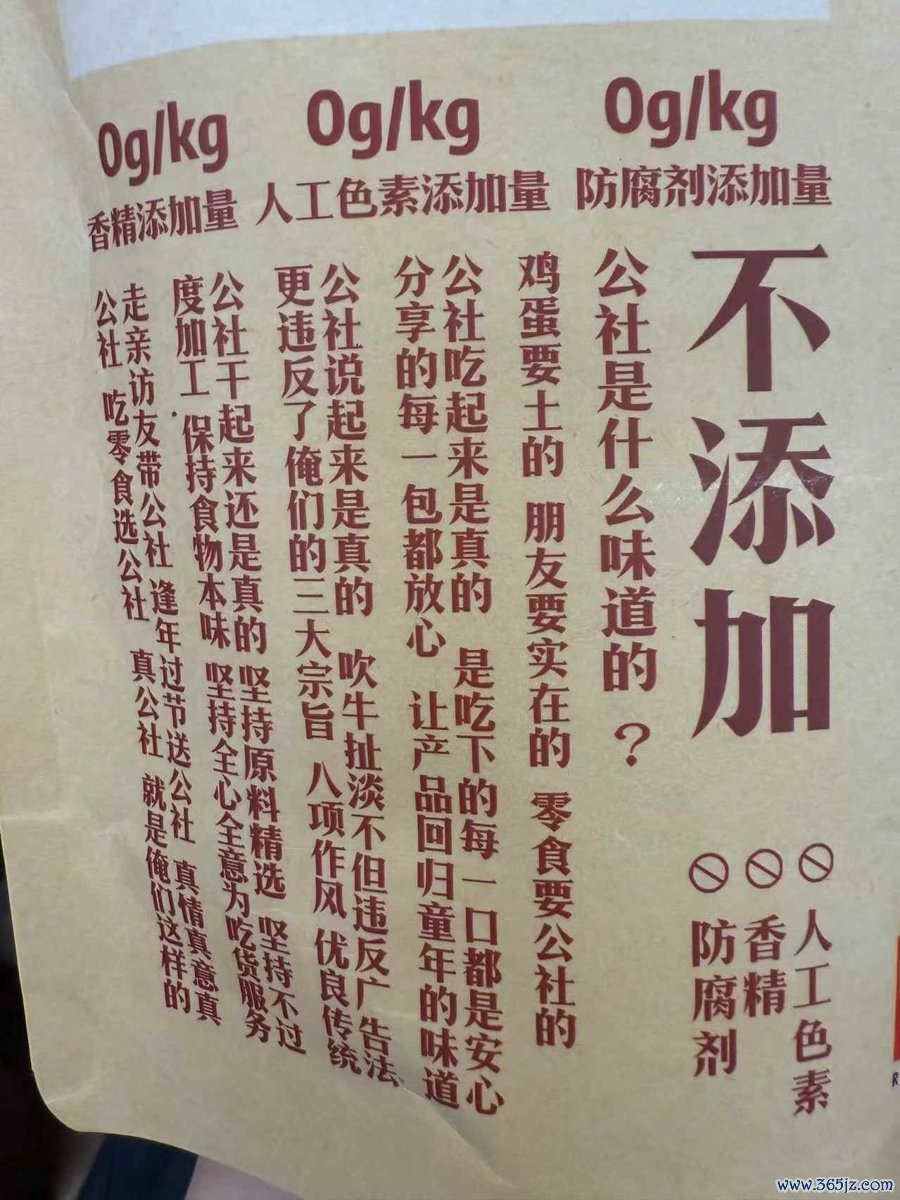 0g/kg
防腐剂添加量
0g/kg
人工色素添加量
0g/kg
香精添加量
不添加
人工色素
香精
防腐剂
公社是什么味道的？
鸡蛋要土的 朋友要实在的 零食要公社的
公社吃起来是真的 是吃下的每一口都是安心
分享的每一包都放心 让产品回归童年的味道
公社说起来是真的 吹牛扯淡不但违反广告法
更违反了俺们的三大宗旨 八项作风 优良传统
公社干起来还是真的 坚持原料精选 坚持不过
度加工 保持食物本味 坚持全心全意为吃货服务
走亲访友带公社 逢年过节送公社 真情真意真
公社 吃零食选公社 真公社 就是俺们这样的
www.365jz.com